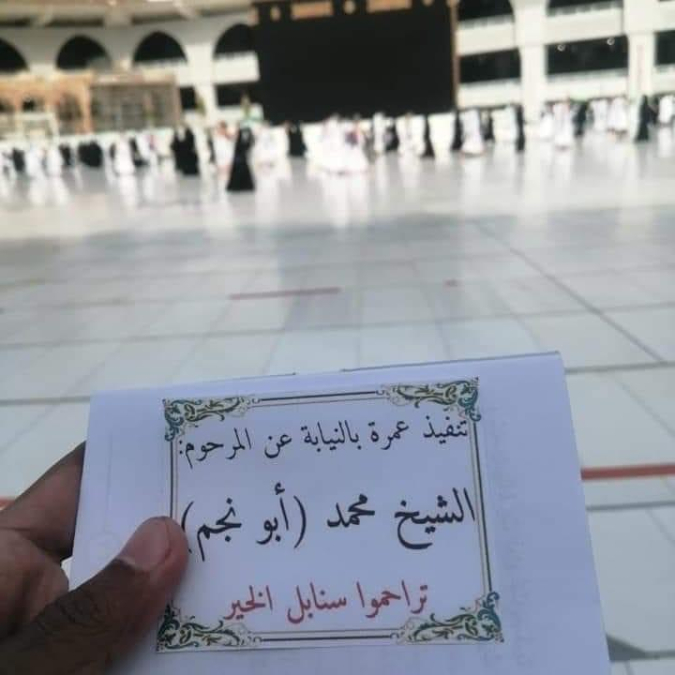 تنفيذ عمرة بالنيابة عن المرحوم:
الشيخ محمد (أبو نجم)
تراحموا سنابل الخير